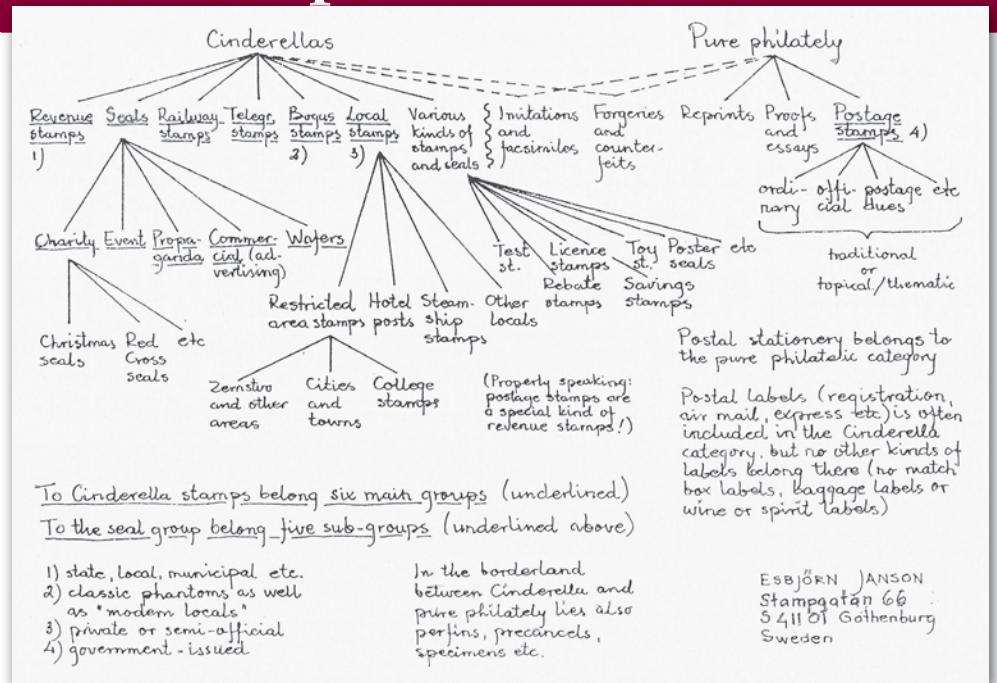 Cinderellas
Pure philately
Revenue stamps 1)
Seals
Railway stamps
Telegr. stamps
Bogus stamps 2)
Local stamps 3)
Various kinds of stamps and seals
Imitations and facsimiles
Forgeries and counter-feits
Reprints
Proofs and essays
Postage stamps 4)
ordi-nary
offi-cial
postage dues
etc
traditional
or
topical/thematic
Charity
Event
Propa-ganda
Commer-cial (ad-vertising)
Wafers
Test st.
Licence stamps
Rebate stamps
Toy st.
Savings stamps
Poster seals
etc
Restricted area stamps
Hotel posts
Steam-ship stamps
Other locals
Christmas seals
Red Cross seals
etc
Zemstvo and other areas
Cities and towns
College stamps
(Properly speaking:
postage stamps are
a special kind of
revenue stamps!)
Postal stationery belongs to
the pure philatelic category
Postal labels (registration,
air mail, express etc) is often
included in the Cinderella
category, but no other kinds of
labels belong there (no match
box labels, baggage labels or
wine or spirit labels)
To Cinderella stamps belong six main groups (underlined)
To the seal group belong five sub-groups (underlined above)
1) state, local, municipal etc.
2) classic phantoms as well
as "modern locals"
3) private or semi-official
4) government-issued
In the borderland
between Cinderella and
pure philately lies also
perfins, precancels,
specimens etc.
ESBJÖRN JANSON
Stampgatan 66
S 411 01 Gothenburg
Sweden